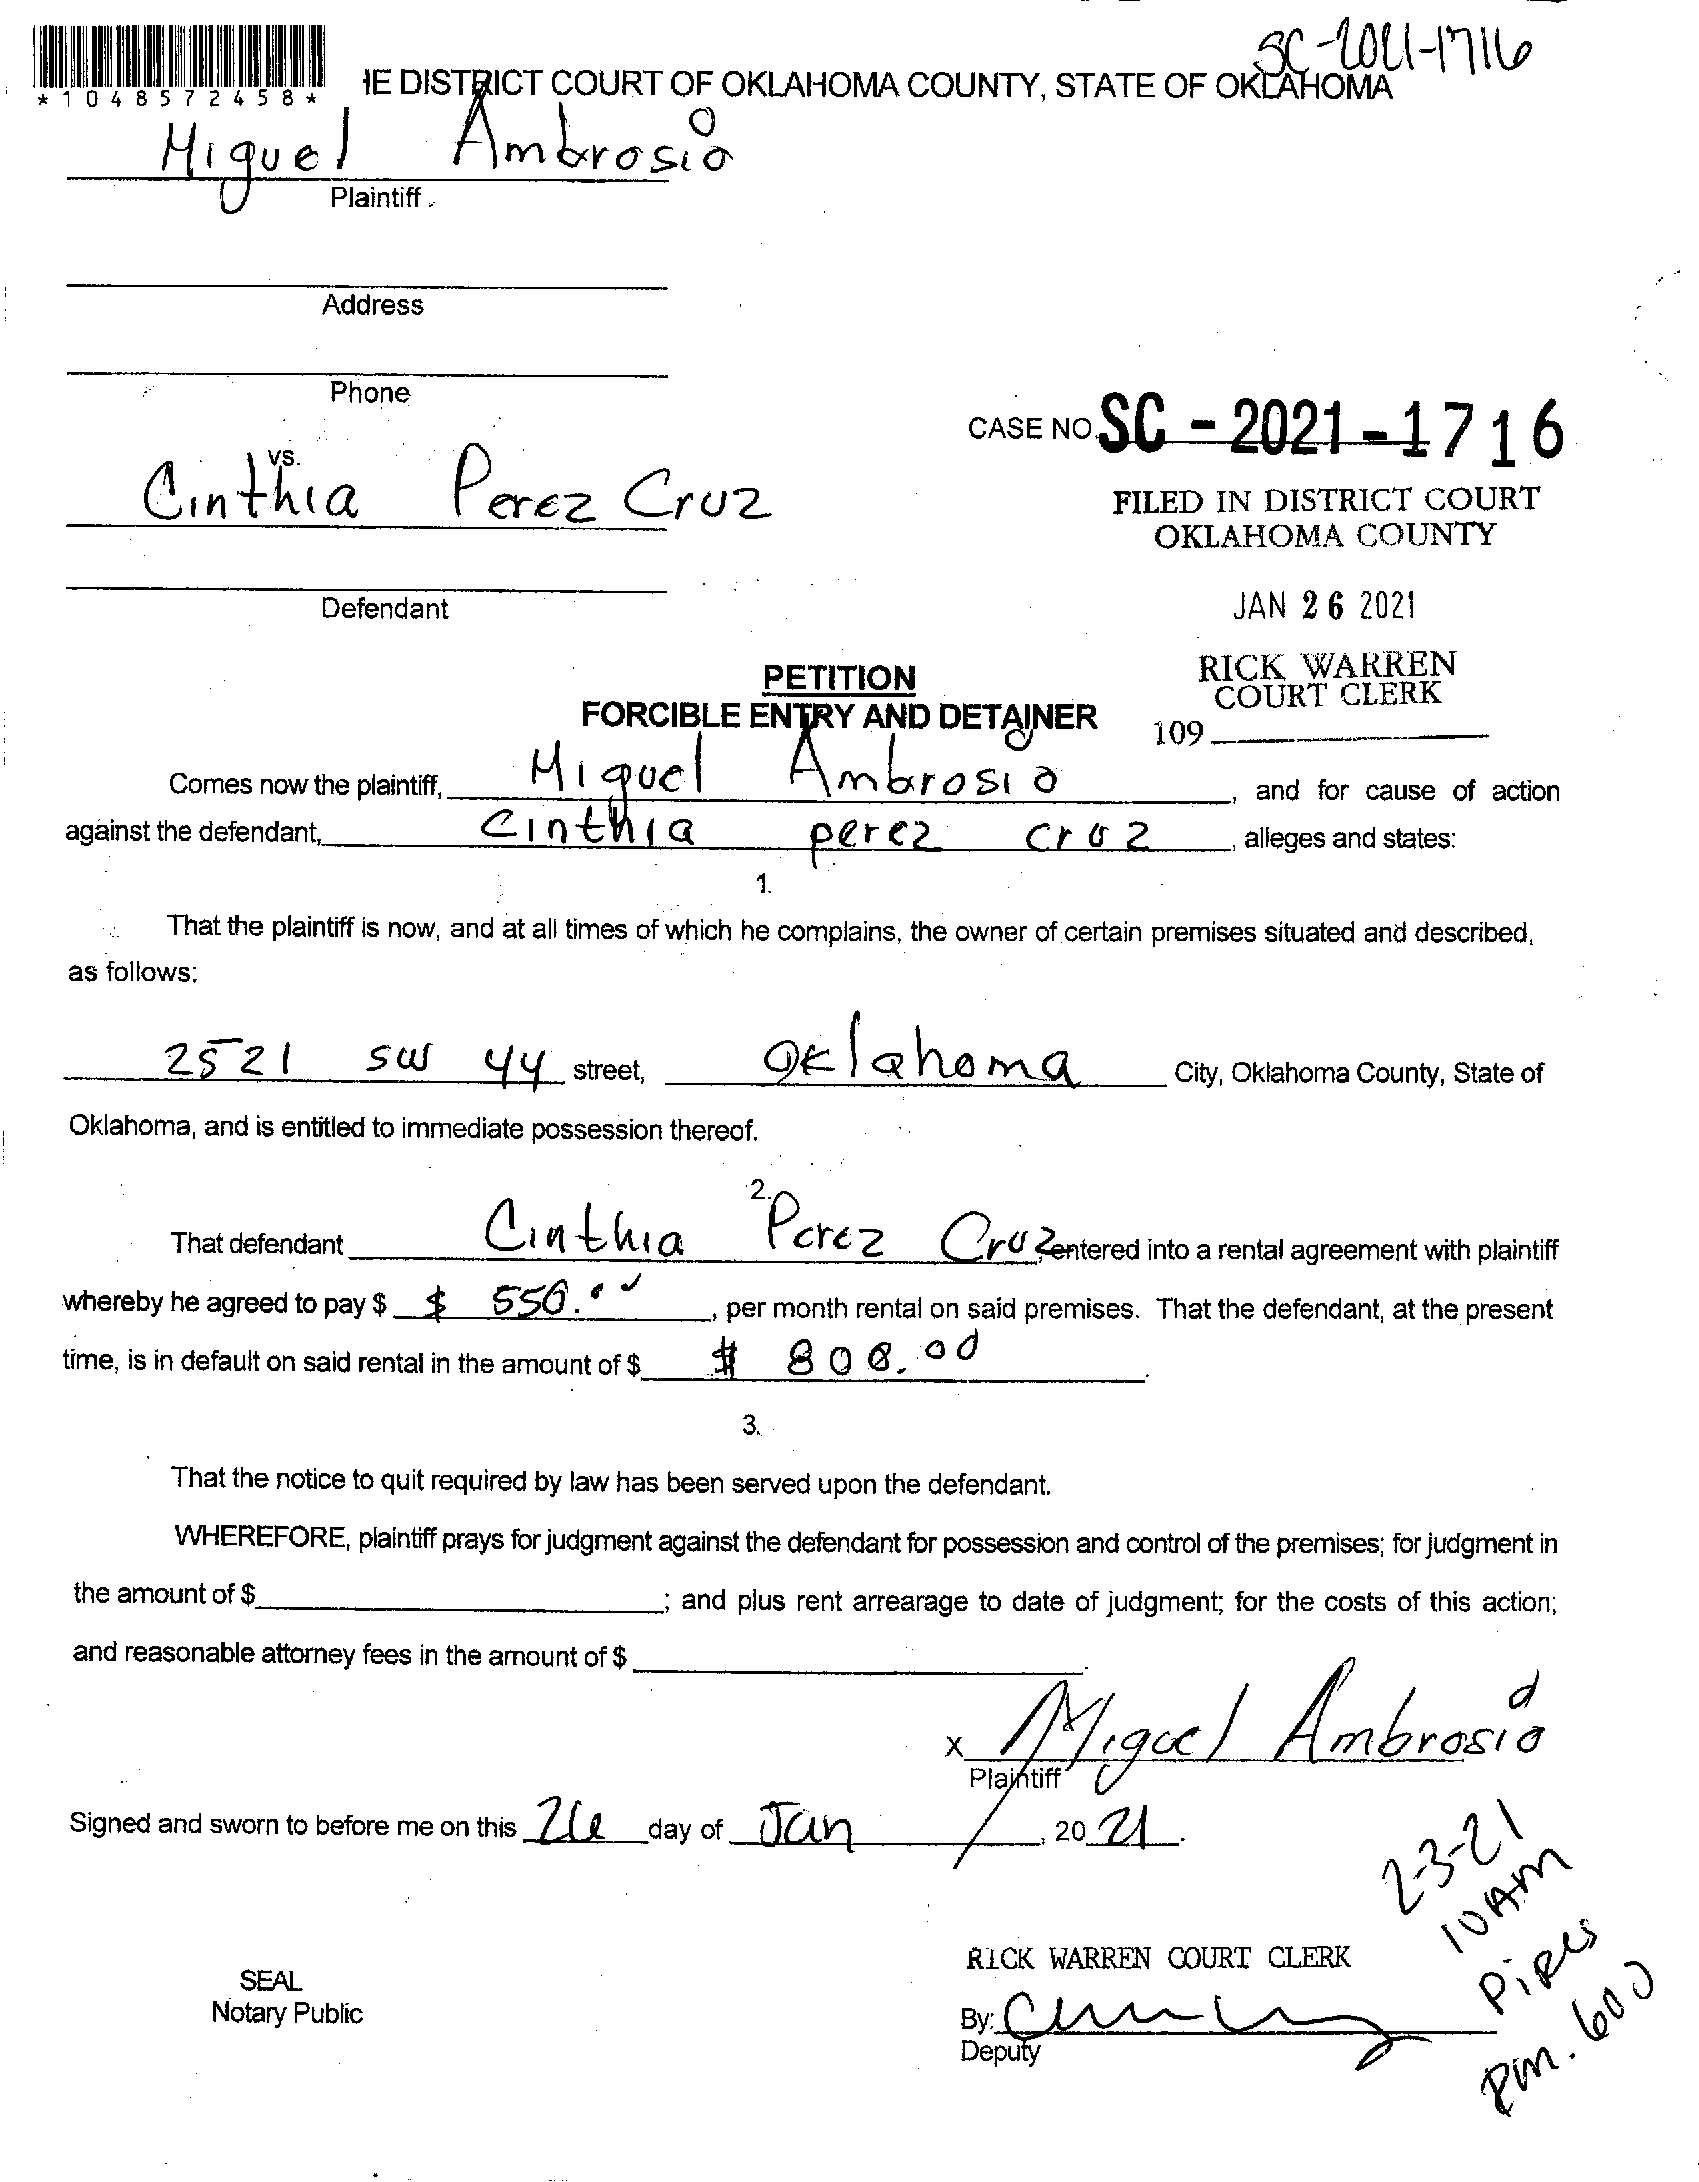 SC-2021-1716
*1048572458*
IE DISTRICT COURT OF OKLAHOMA COUNTY, STATE OF OKLAHOMA
Miguel Ambrosio
Plaintiff
Address
Phone
CASE NO. SC - 2021 - 1716
vs.
Cinthia Perez Cruz
FILED IN DISTRICT COURT
OKLAHOMA COUNTY
Defendant
JAN 26 2021
RICK WARREN
COURT CLERK
109
PETITION
FORCIBLE ENTRY AND DETAINER
Comes now the plaintiff, Miguel Ambrosio, and for cause of action
against the defendant, Cinthia perez cruz, alleges and states:
1.
That the plaintiff is now, and at all times of which he complains, the owner of certain premises situated and described,
as follows:
2521 SW 44 street, Oklahoma City, Oklahoma County, State of
Oklahoma, and is entitled to immediate possession thereof.
2.
That defendant Cinthia Perez Cruz, entered into a rental agreement with plaintiff
whereby he agreed to pay $ $ 550.00, per month rental on said premises. That the defendant, at the present
time, is in default on said rental in the amount of $ $ 800.00.
3.
That the notice to quit required by law has been served upon the defendant.
WHEREFORE, plaintiff prays for judgment against the defendant for possession and control of the premises; for judgment in
the amount of $ ; and plus rent arrearage to date of judgment; for the costs of this action;
and reasonable attorney fees in the amount of $ .
x Miguel Ambrosio
Plaintiff
Signed and sworn to before me on this 26 day of Jan, 2021.
2-3-21
10 AM
PiRes
Rm. 600
RICK WARREN COURT CLERK
SEAL
Notary Public
By:
Deputy